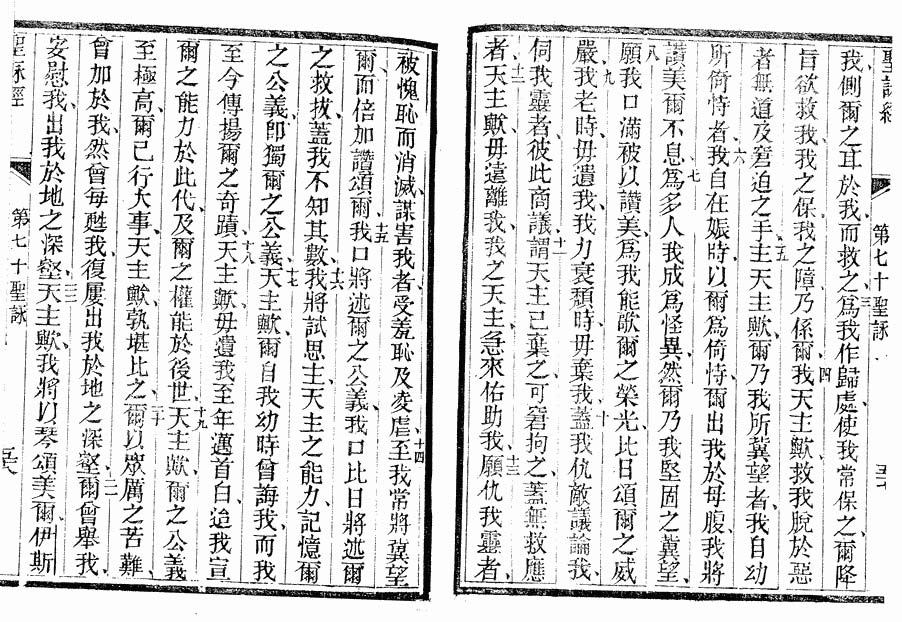 聖詠經
第七十聖詠
我側爾之耳於我、而救之、三爲我作歸處、使我常保之、爾降
旨欲救我、我之保、我之障、乃係爾、四我天主歟、救我脫於惡
者、無道及窘迫之手、五主天主歟、爾乃我所冀望者、我自幼
所倚恃者、六我自在娠時、以爾爲倚恃、爾出我於母腹、我將
讚美爾不息、七爲多人我成爲怪異、然爾乃我堅固之冀望、
八願我口滿被以讚美、爲我能歌爾之榮光、比日頌爾之威
嚴、九我老時、毋遺我、我力衰頹時、毋棄我、十蓋我仇敵議論我、
伺我靈者、彼此商議、十一謂天主已棄之、可窘拘之、蓋無救應
者、十二天主歟、毋遠離我、我之天主、急來佑助我、十三願仇我靈者、
被愧恥而消滅、謀害我者、受羞恥及凌虐、十四至我常將冀望
爾、而倍加讚頌爾、十五我口將述爾之公義、我口比日將述爾
之救拔、蓋我不知其數、十六我將試思主天主之能力、記憶爾
之公義、即獨爾之公義、十七天主歟、爾自我幼時曾誨我、而我
至今傳揚爾之奇蹟、十八天主歟、毋遺我至年邁首白、迨我宣
爾之能力於此代、及爾之權能於後世、十九天主歟、爾之公義
至極高、爾已行大事、天主歟、孰堪比之、二十爾以眾厲之苦難、
曾加於我、然曾每甦我、復屢出我於地之深壑、二一爾曾舉我、
安慰我、出我於地之深壑、二二天主歟、我將以琴頌美爾、伊斯
聖詠經
第七十聖詠